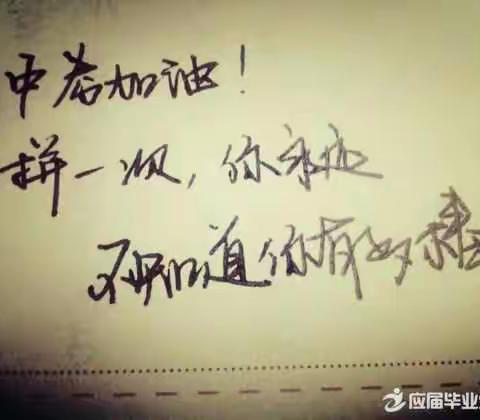 中考加油!
拼一次,你永远
不知道你有多
应届毕业